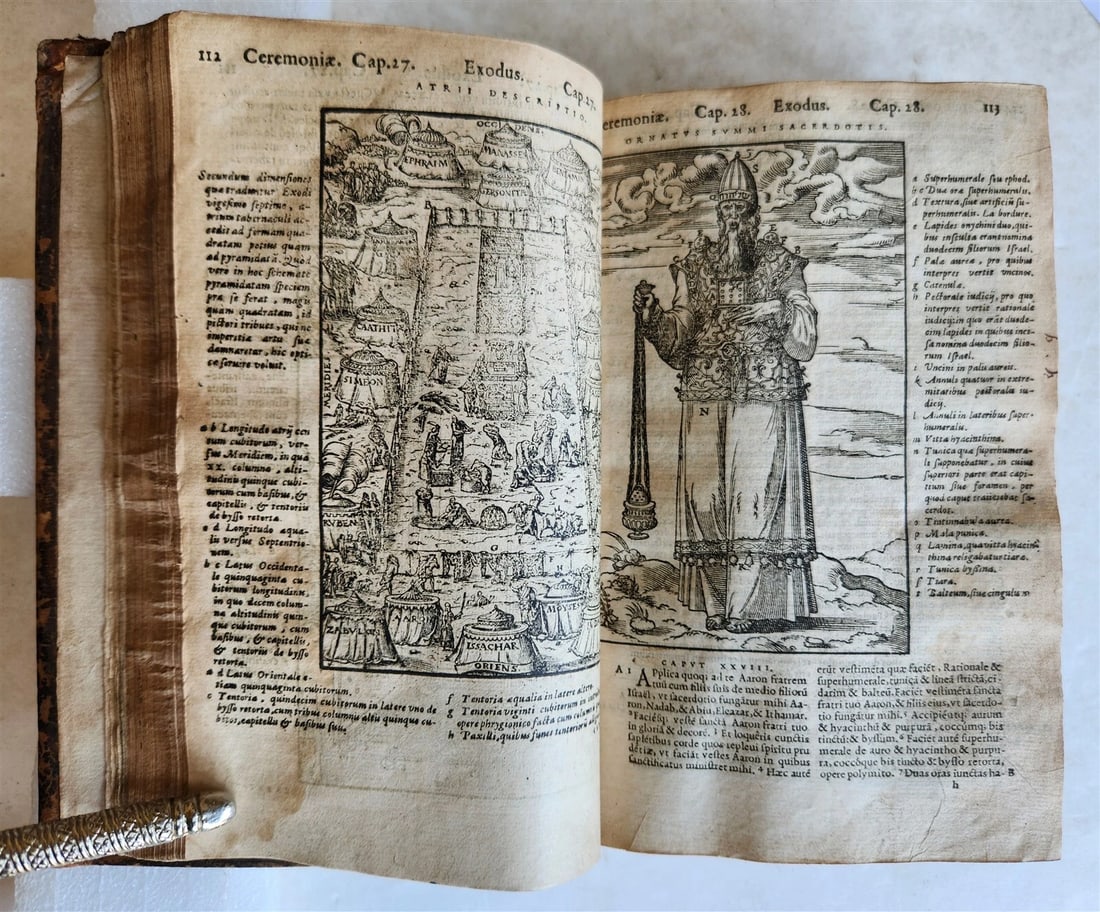 112 Ceremoniæ. Cap.27. Exodus. Cap.27.
ATRII DESCRIPTIO.
Secundum dimensiones
quæ traduntur Exodi
vigesimo septimo, a-
trium tabernaculi ac-
cedit ad formam qua-
dratam potius quam
ad pyramidatā. Quod
vero in hoc schemate
pyramidatam speciem
præ se ferat, magis
quam quadratam, id
pictori tribues, qui ne
imperitia artis suæ
damnaretur, hic opti-
cæ servire voluit.
a b Longitudo atrij cen
tum cubitorum, ver-
sus Meridiem, in qua
XX. columnæ, alti-
tudinis quinque cubi-
torum cum basibus, &
capitellis, & tentoriis
de bysso retorta.
c d Longitudo æqua-
lis versus Septentrio-
nem.
b c Latus Occidenta-
le quinquaginta cu-
bitorum longitudinis,
in quo decem colum-
næ altitudinis quin-
que cubitorum, cum
basibus, & capitellis,
& tentoriis de bysso
retorta.
a d Latus Orientale e-
tiam quinquaginta cubitorum.
e Tentoria, quindecim cubitorum in latere vno de
bysso retorta, cum tribus columnis altis quinque cu-
bitos, capitellis & basibus suis.
f Tentoria æqualia in latere altero
g Tentoria viginti cubitorum in
opere phrygionico facta cum columnis
h Paxilli, quibus funes tentoriorum
OCCIDENS.
EPHRAIM
MANASSE
BENIAMIN
GERSONITÆ
B
MERIDIES
SIMEON
RVBEN
G
ZABVLON
AARON
MOYSES
ISSACHAR
ORIENS
Ceremoniæ. Cap. 28. Exodus. Cap. 28. 113
ORNATVS SVMMI SACERDOTIS.
S
N
a Superhumerale seu ephod.
b c Duæ oræ superhumeralis.
d Textura, sive artificiū su-
perhumeralis. La bordure.
e Lapides onychini duo, qui-
bus insculta erant nomina
duodecim filiorum Israel.
f Pala aurea, pro quibus
interpres vertit vncinos.
g Catenulæ.
h Pectorale iudicij, pro quo
interpres vertit rationale
iudicij: in quo erāt duode-
cim lapides in quibus inci-
sa nomina duodecim filio-
rum Israel.
i Vncini in palis aureis.
k Annuli quatuor in extre-
mitatibus pectoralis iu-
dicij.
l Annuli in lateribus super-
humeralis.
m Vitta hyacinthina.
n Tunica quæ superhumera-
li supponebatur, in cuius
superiori parte erat capi-
tium sive foramen, per
quod caput traiiciebat sa-
cerdos.
o Tintinnabula aurea.
p Mala punica.
q Lamina, quæ vitta hyacin
thina religabatur tiaræ.
r Tunica byssina.
s Tiara.
t Balteum, sive cingulū
CAPVT XXVIII.
A 1 APplica quoq; ad te Aaron fratrem
tuū cum filiis suis de medio filiorū
Israel, vt sacerdotio fungātur mihi Aa-
ron, Nadab, & Abiu, Eleazar, & Ithamar.
² Faciésq; vesté sanctā Aaron fratri tuo
in gloriā & decoré. ³ Et loquêris cunctis
sapiétibus corde quos repleui spiritu pru
détiæ, vt faciāt vestes Aaron in quibus
sanctificatus ministret mihi. ⁴ Hæc auté
erūt vestiméta quæ faciét, Rationale &
superhumerale, tunicā & lineā strictā, ci-
darim & balteū. Faciét vestiméta sancta
fratri tuo Aaron, & filiis eius, vt sacerdo-
tio fungātur mihi. ⁵ Accipiétq; aurum
& hyacinthū & purpurā, coccūmq; bis
tinctū: & byssum. ⁶ Faciét auté superhu-
merale de auro & hyacintho & purpu-
ra, coccóque bis tincto & bysso retorta,
opere polymito. ⁷ Duas oras iunctas ha- B
h